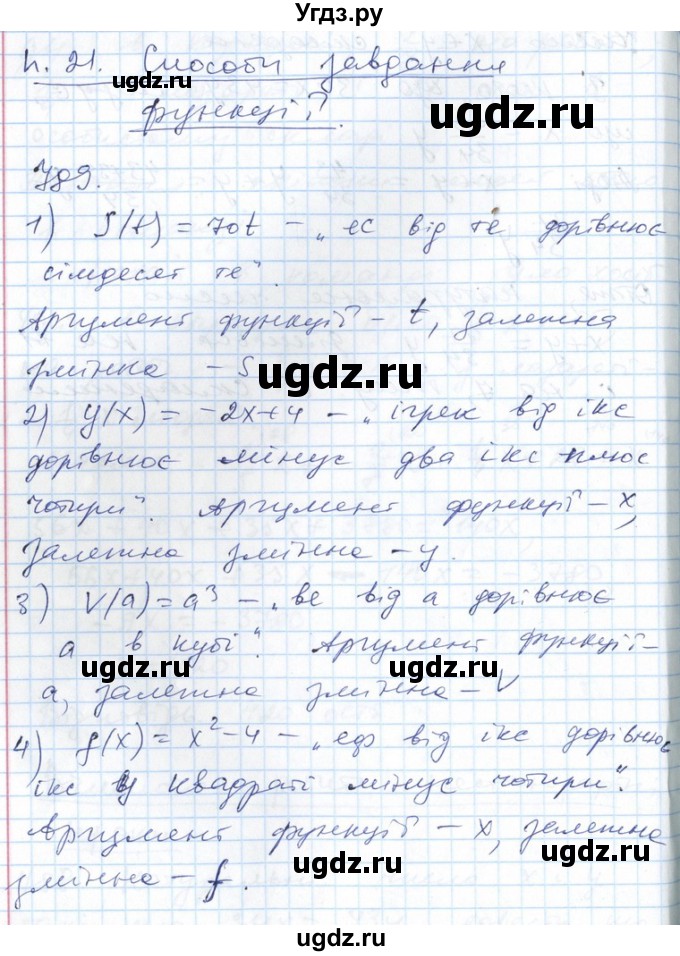 Угдз.ру
п. 21. Способи завдання
функції.
ugdz.ru
789.
1) S(t) = 70t – „ес від те дорівнює
сімдесят те".
Аргумент функції – t, залежна
змінна – S
ugdz.ru
2) y(x) = -2x+4 – „ігрек від ікс
дорівнює мінус два ікс плюс
чотири". Аргумент функції – x,
ugdz.ru
залежна змінна – y.
3) V(a) = a³ – „ве від а дорівнює
а в кубі". Аргумент функції –
ugdz.ru ugdz.ru
a, залежна змінна – V
4) f(x) = x² - 4 – „еф від ікс дорівнює
ікс у квадраті мінус чотири".
Аргумент функції – x, залежна
ugdz.ru
змінна – f.
ugdz.ru
ugdz.ru